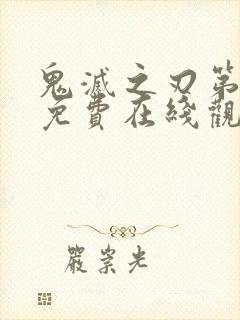 鬼滅之刃第
免費在綫觀
嚴崇光